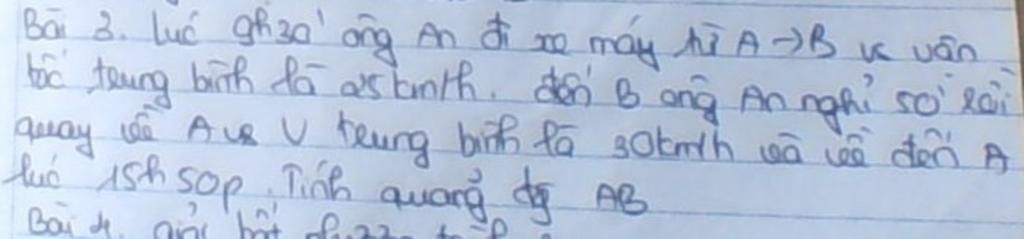 Bài 3. lúc 9h30' ông An đi xe máy từ A → B vs vận
tốc trung bình là 25km/h. đến B ông An nghỉ 50' rồi
quay về A vs V trung bình là 30km/h và về đến A
lúc 15h50p. Tính quãng đg AB
Bài 4. giải bất